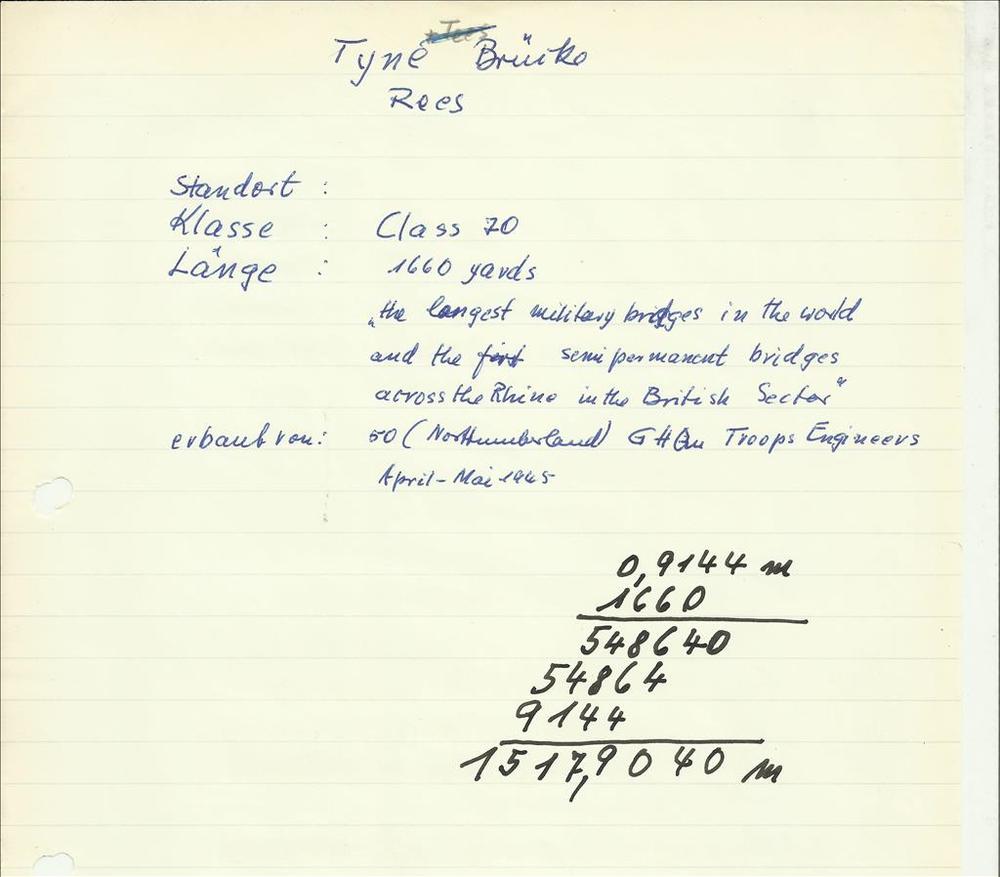 Tees
Tyne Brücke
Rees
Standort :
Klasse : Class 70
Länge : 1660 yards
„the longest military bridges in the world
and the first semipermanent bridges
across the Rhine in the British Sector"
erbaut von: 50 (Northumberland) GHQ Troops Engineers
April - Mai 1945
0,9144 m
1660
548640
54864
9144
1517,9040 m